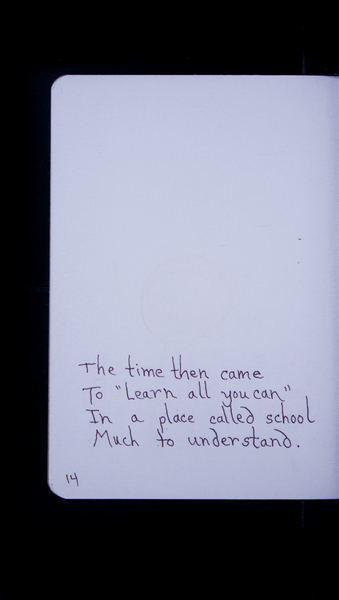 The time then came
To "Learn all you can"
In a place called school
Much to understand.
14